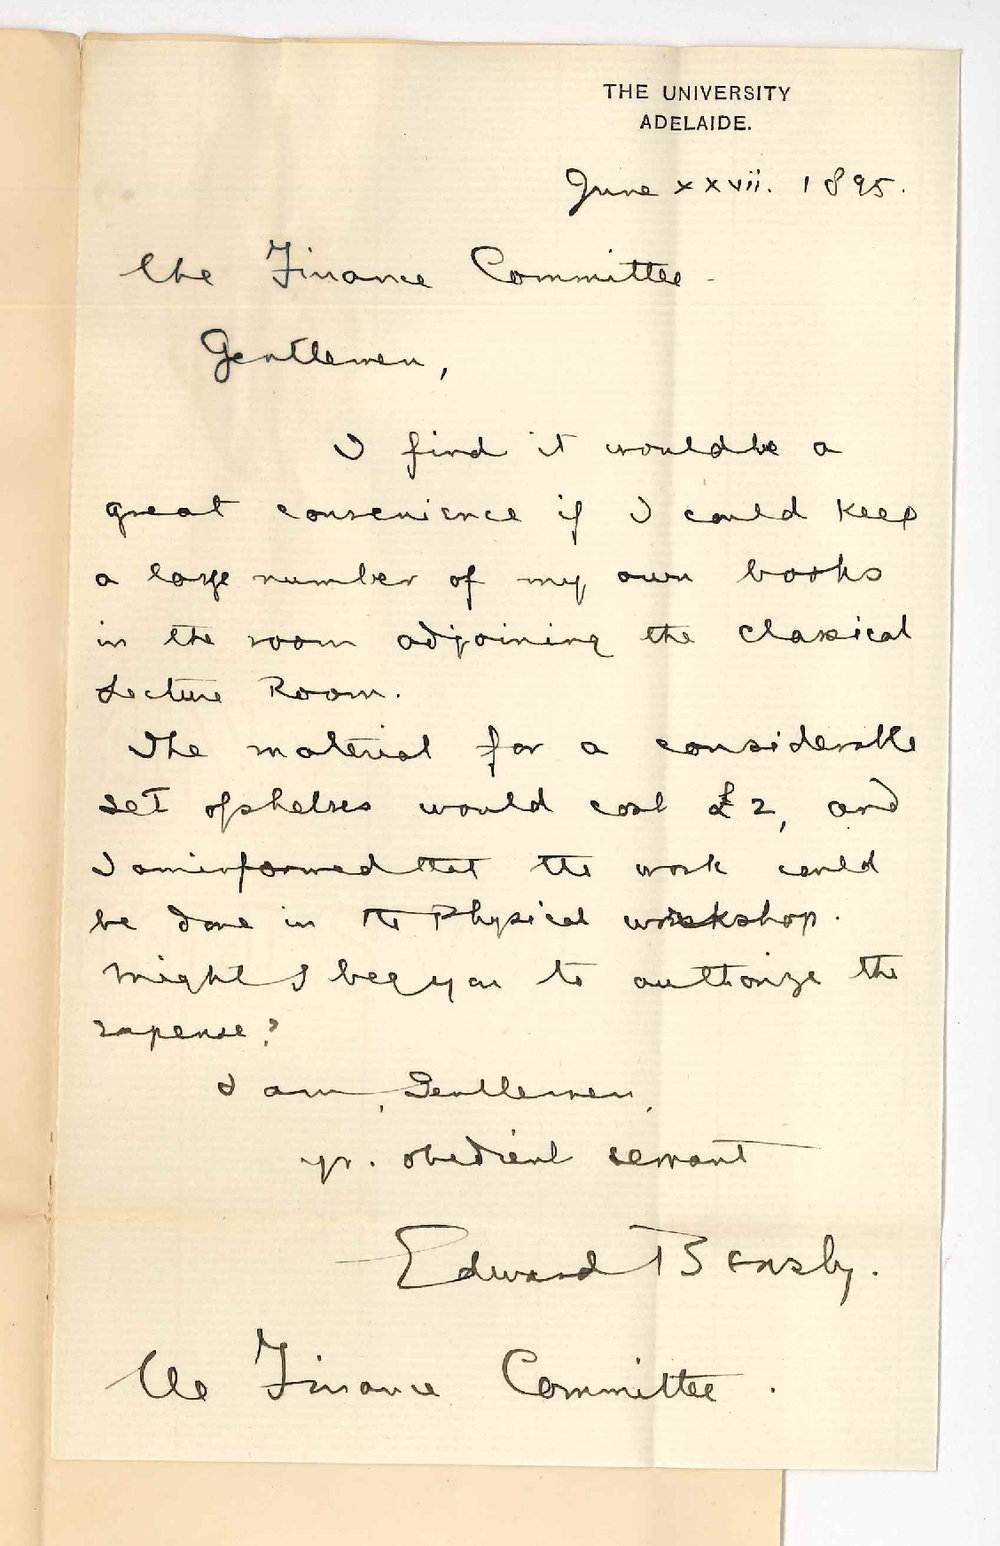 THE UNIVERSITY
ADELAIDE.
June xxvii. 1895.
The Finance Committee.
Gentlemen,
I find it would be a
great convenience if I could keep
a large number of my own books
in the room adjoining the Classical
Lecture Room.
The material for a considerable
set of shelves would cost £2, and
I am informed that the work could
be done in the Physical workshop.
Might I beg you to authorize the
expense?
I am, Gentlemen,
yr. obedient servant
Edward Bensly.
The Finance Committee.